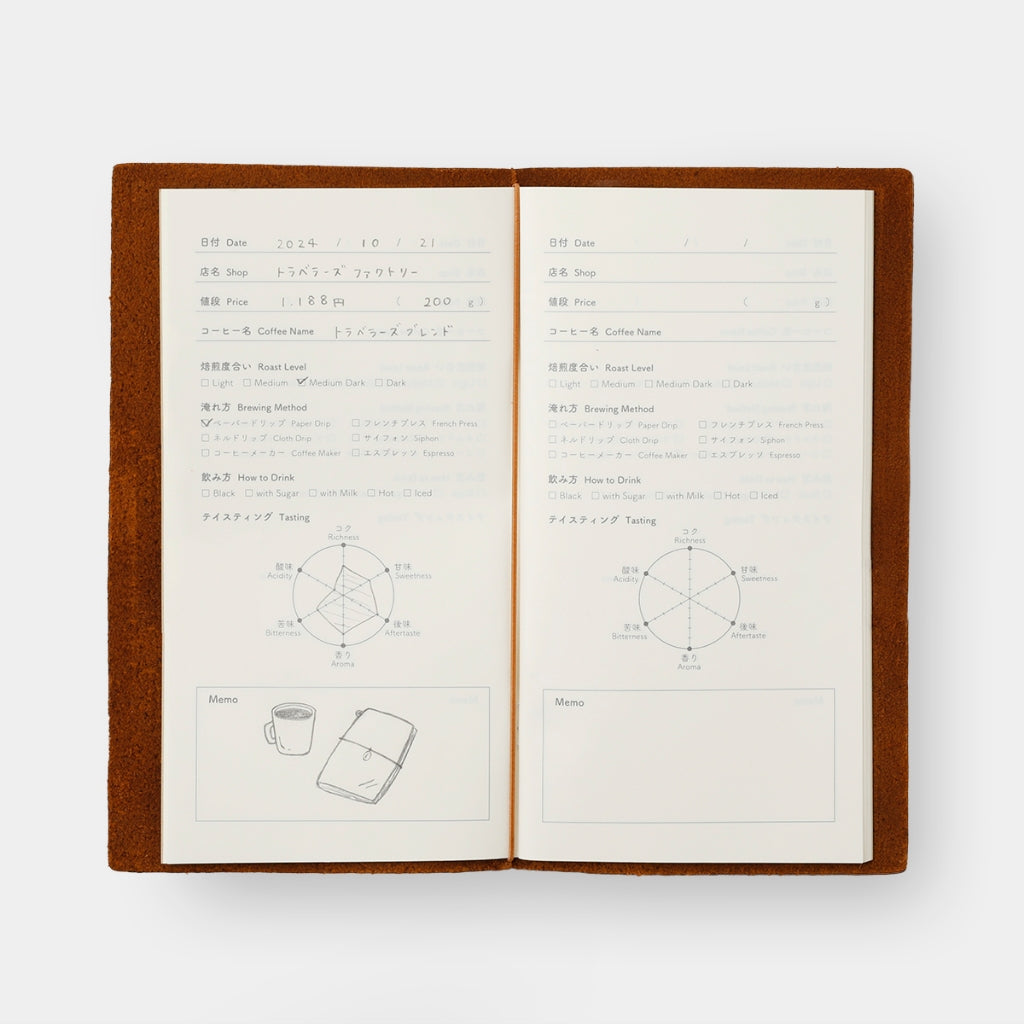 日付 Date 2024 / 10 / 21
店名 Shop トラベラーズ ファクトリー
値段 Price 1.188円 ( 200 g )
コーヒー名 Coffee Name トラベラーズブレンド
焙煎度合い Roast Level
☐ Light ☐ Medium ☑ Medium Dark ☐ Dark
淹れ方 Brewing Method
☑ ペーパードリップ Paper Drip ☐ フレンチプレス French Press
☐ ネルドリップ Cloth Drip ☐ サイフォン Siphon
☐ コーヒーメーカー Coffee Maker ☐ エスプレッソ Espresso
飲み方 How to Drink
☐ Black ☐ with Sugar ☐ with Milk ☐ Hot ☐ Iced
テイスティング Tasting
コク
Richness
酸味 甘味
Acidity Sweetness
苦味 後味
Bitterness Aftertaste
香り
Aroma
Memo
日付 Date / /
店名 Shop
値段 Price ( g )
コーヒー名 Coffee Name
焙煎度合い Roast Level
☐ Light ☐ Medium ☐ Medium Dark ☐ Dark
淹れ方 Brewing Method
☐ ペーパードリップ Paper Drip ☐ フレンチプレス French Press
☐ ネルドリップ Cloth Drip ☐ サイフォン Siphon
☐ コーヒーメーカー Coffee Maker ☐ エスプレッソ Espresso
飲み方 How to Drink
☐ Black ☐ with Sugar ☐ with Milk ☐ Hot ☐ Iced
テイスティング Tasting
コク
Richness
酸味 甘味
Acidity Sweetness
苦味 後味
Bitterness Aftertaste
香り
Aroma
Memo